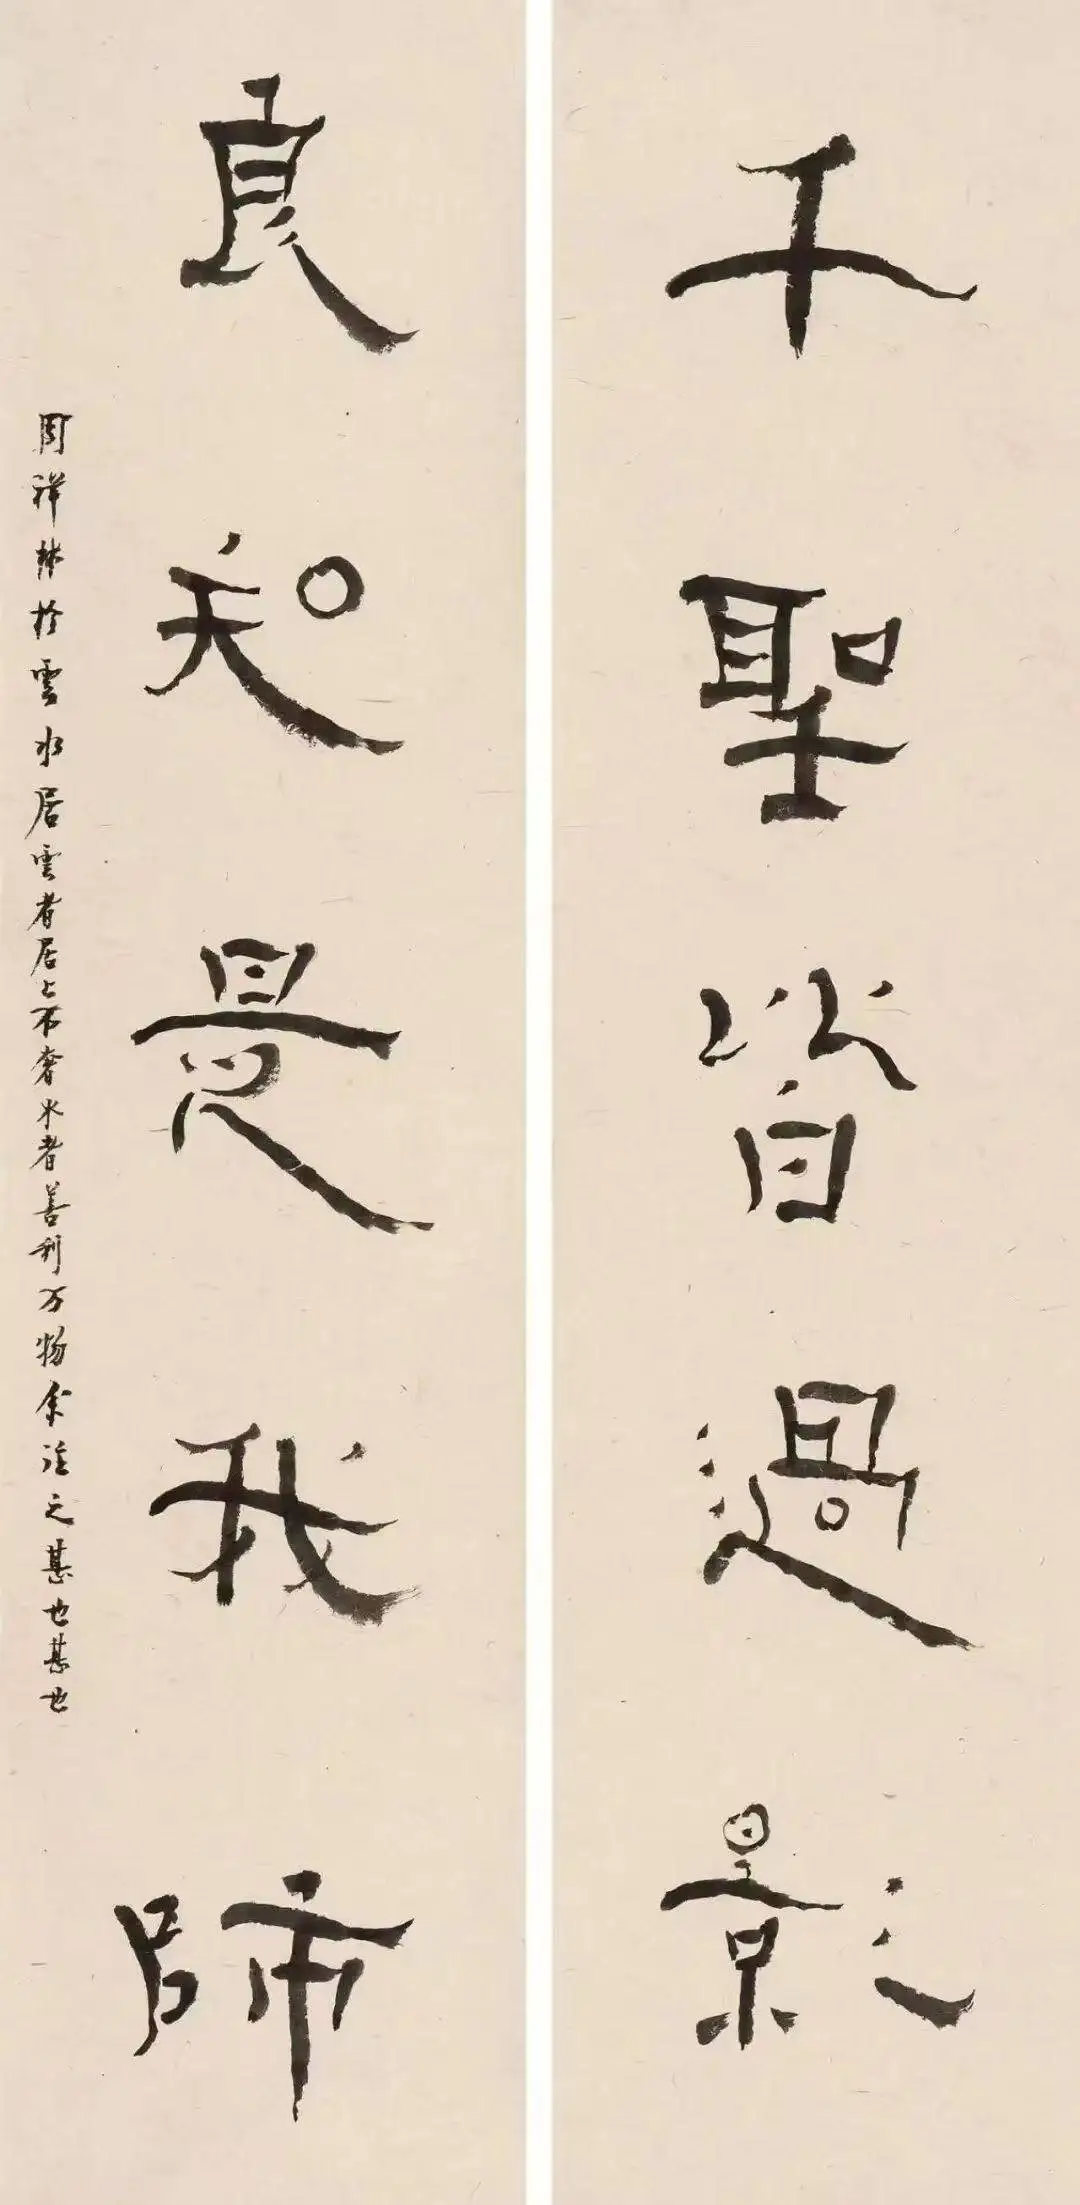 千聖皆過影
良知是我師
周祥林於雲水居雲者居上不奢水者善利万物余注之甚也甚也